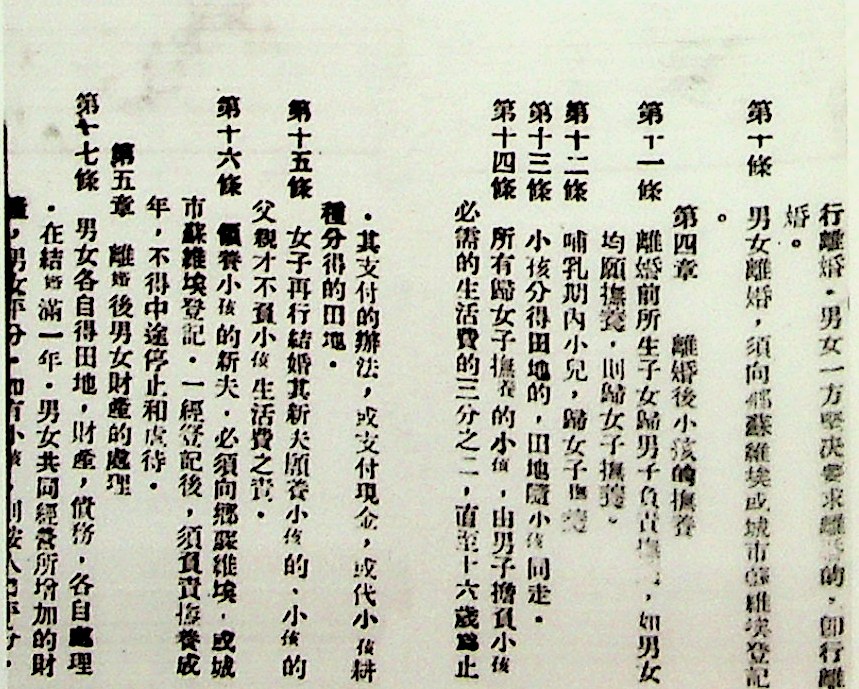 行離婚．男女一方堅决要求離婚的，卽行離
婚。
第十條　男女離婚，須向鄕蘇維埃或城市蘇維埃登記
。
第四章　離婚後小孩的撫養
第十一條　離婚前所生子女歸男子負責撫　，如男女
均願撫養，則歸女子撫養。
第十二條　哺乳期內小兒，歸女子撫養
第十三條　小孩分得田地的，田地隨小孩同走．
第十四條　所有歸女子撫養的小孩，由男子擔負小孩
必需的生活費的三分之二，直至十六歲爲止
．其支付的辦法，或支付現金，或代小孩耕
種分得的田地．
第十五條　女子再行結婚其新夫願養小孩的、小孩的
父親才不負小孩生活費之責．
第十六條　領養小孩的新夫．必須向鄕蘇維埃．或城
市蘇維埃登記．一經登記後，須負責撫養成
年，不得中途停止和虐待．
第五章　離婚後男女財產的處理
第十七條　男女各自得田地，財產，債務，各自處理
．在結婚滿一年．男女共同經營所增加的財
，男女平分．如有小孩，則按人口平分．